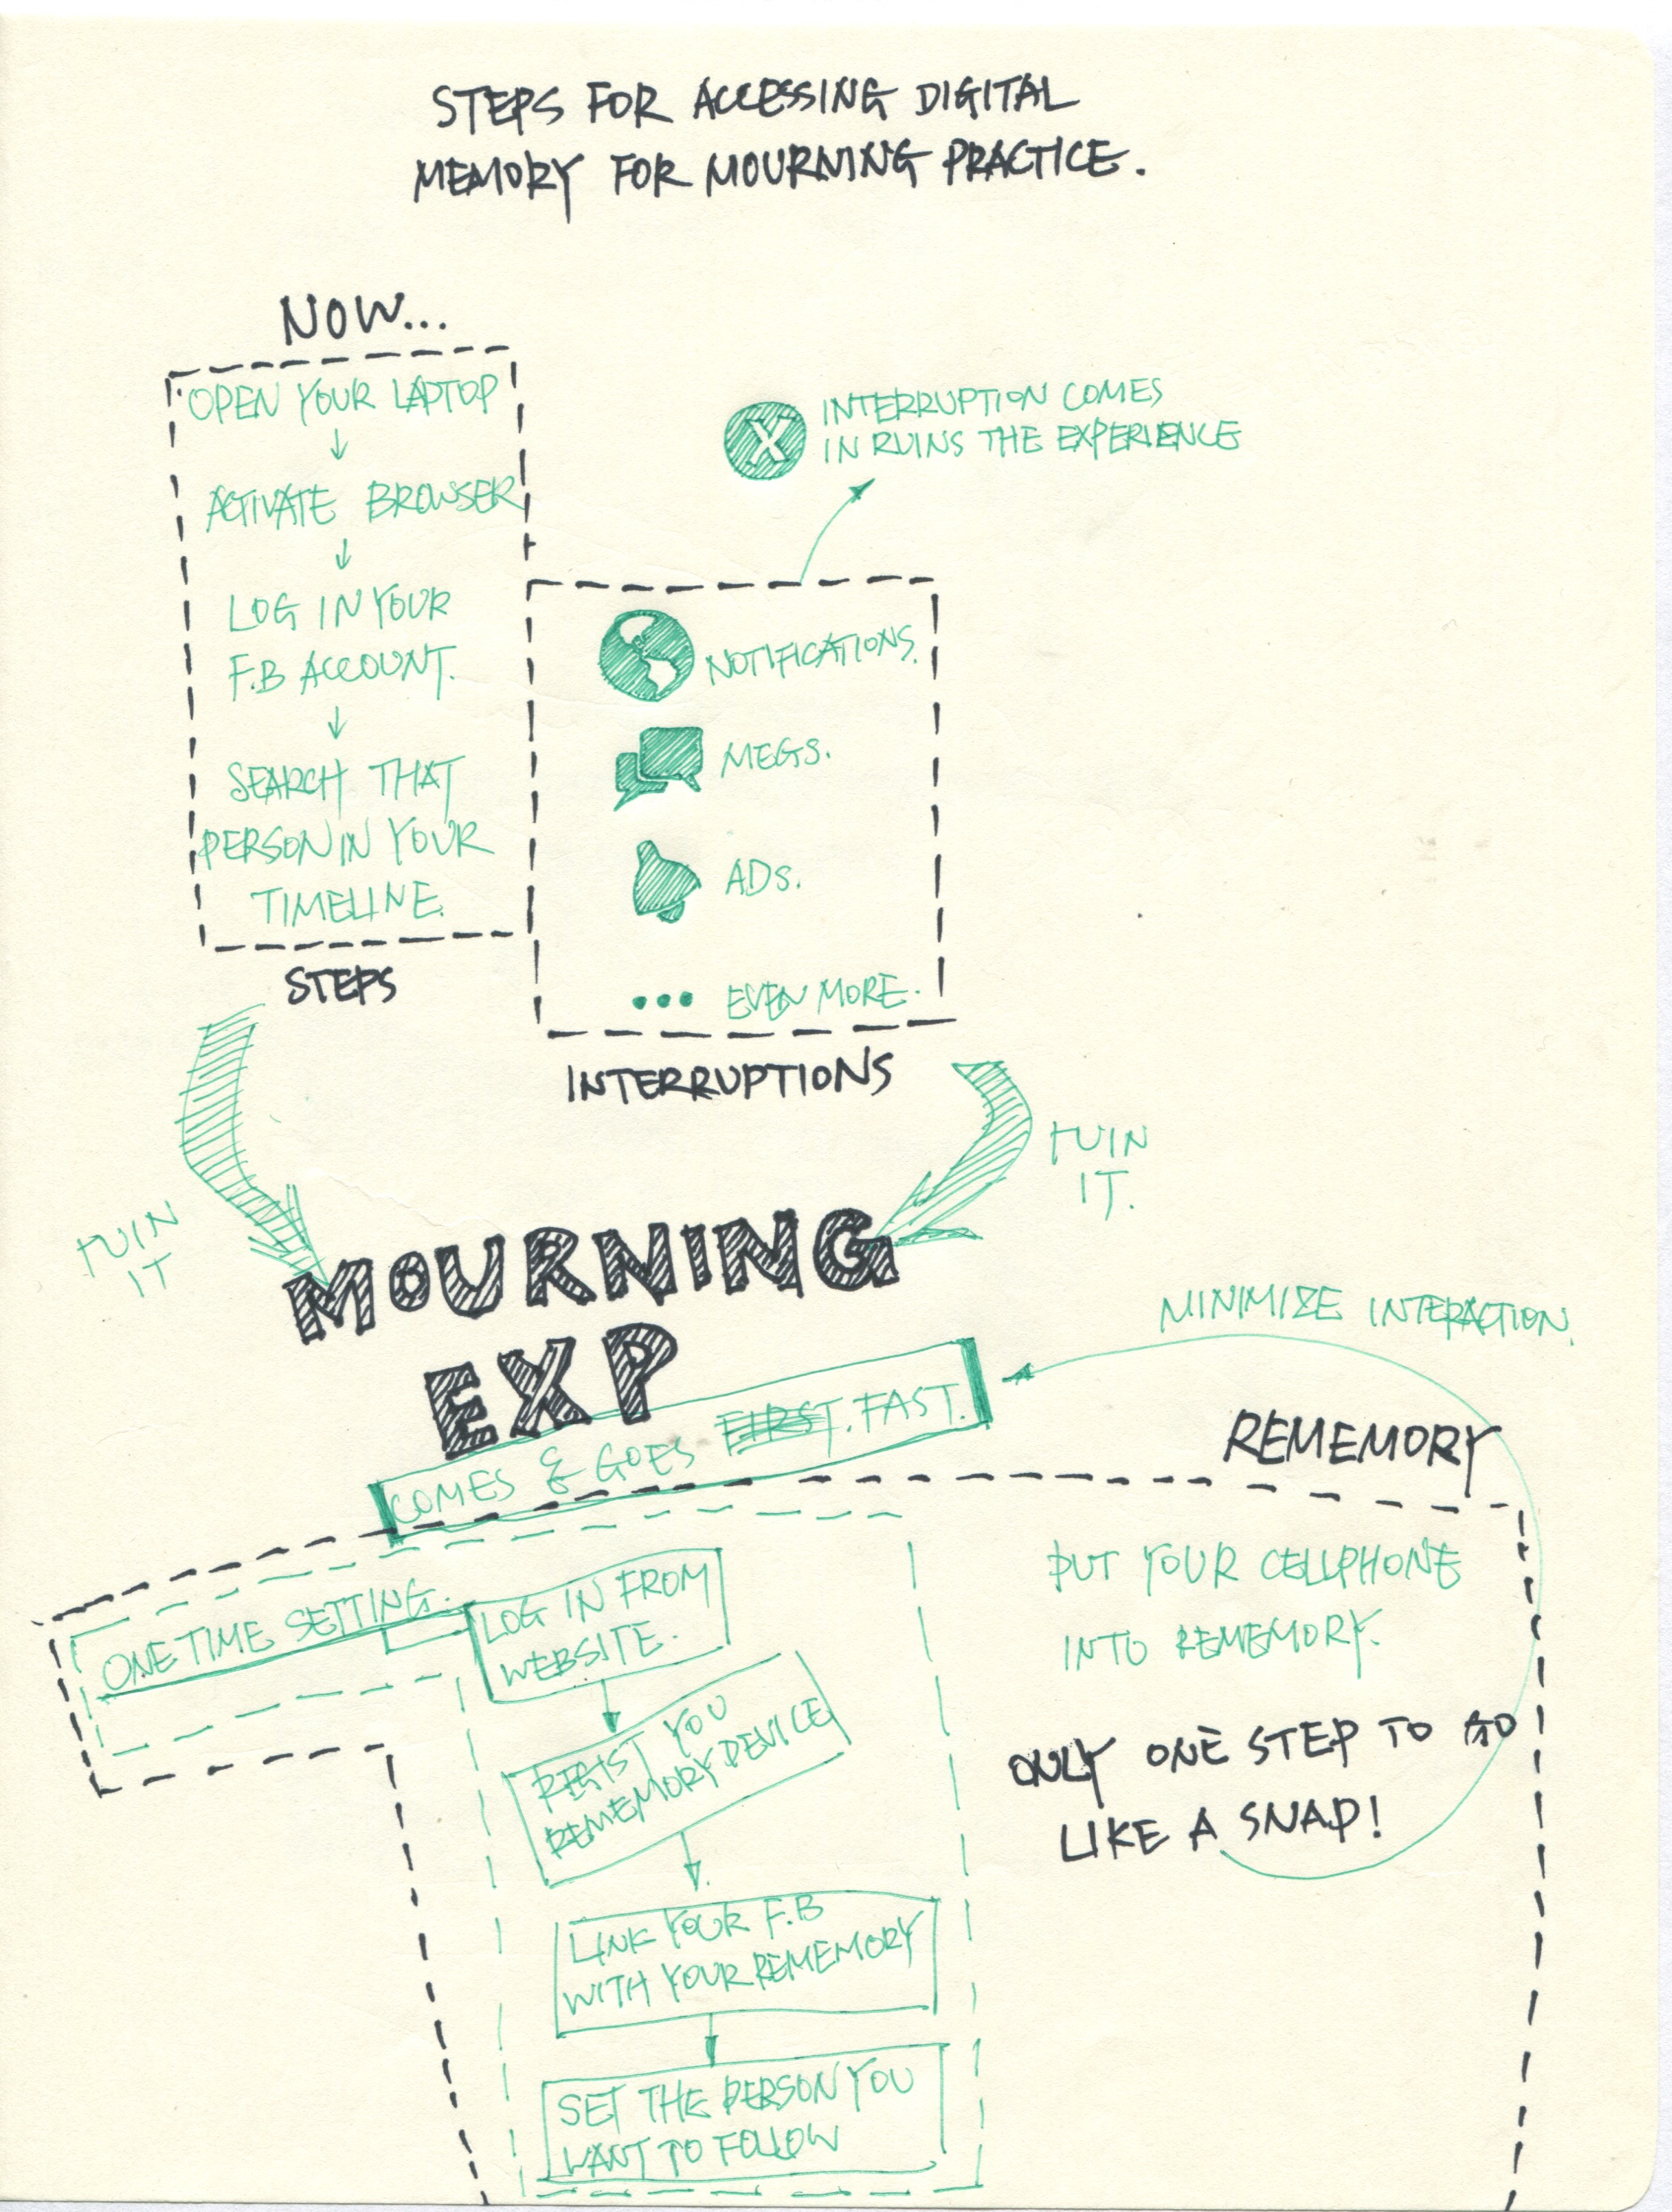 STEPS FOR ACCESSING DIGITAL
MEMORY FOR MOURNING PRACTICE.
NOW...
OPEN YOUR LAPTOP
↓
ACTIVATE BROWSER
↓
LOG IN YOUR
F.B ACCOUNT.
↓
SEARCH THAT
PERSON IN YOUR
TIMELINE.
STEPS
X
INTERRUPTION COMES
IN RUINS THE EXPERIENCE
NOTIFICATIONS.
MEGS.
ADS.
... EVEN MORE.
INTERRUPTIONS
RUIN
IT
RUIN
IT.
MOURNING
EXP
COMES & GOES FIRST. FAST.
MINIMIZE INTERACTION.
REMEMORY
ONE TIME SETTING.
LOG IN FROM
WEBSITE.
REGIST YOU
REMEMORY DEVICE
LINK YOUR F.B
WITH YOUR REMEMORY
SET THE PERSON YOU
WANT TO FOLLOW
PUT YOUR CELLPHONE
INTO REMEMORY.
ONLY ONE STEP TO GO
LIKE A SNAP!